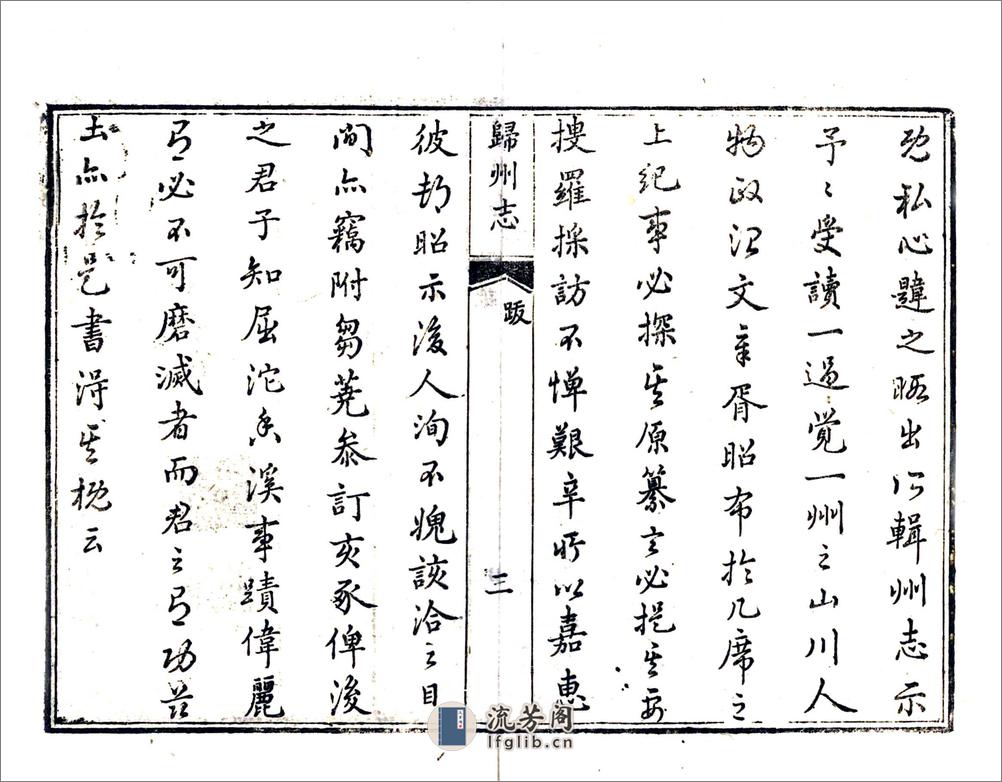 既私心韙之晒出所輯州志示
予〻受讀一過覺一州之山川人
物政治文章胥昭布於几席之
上紀事必探其原纂言必提其要
搜羅採訪不憚艱辛所以嘉惠
歸州志
跋
三
彼都昭示後人洵不愧該洽之目
間亦竊附芻蕘叅訂亥豕俾後
之君子知屈沱香溪事蹟偉麗
有必不可磨滅者而君之有功茲
土亦於是書得其概云
流芳阁
lfglib.cn